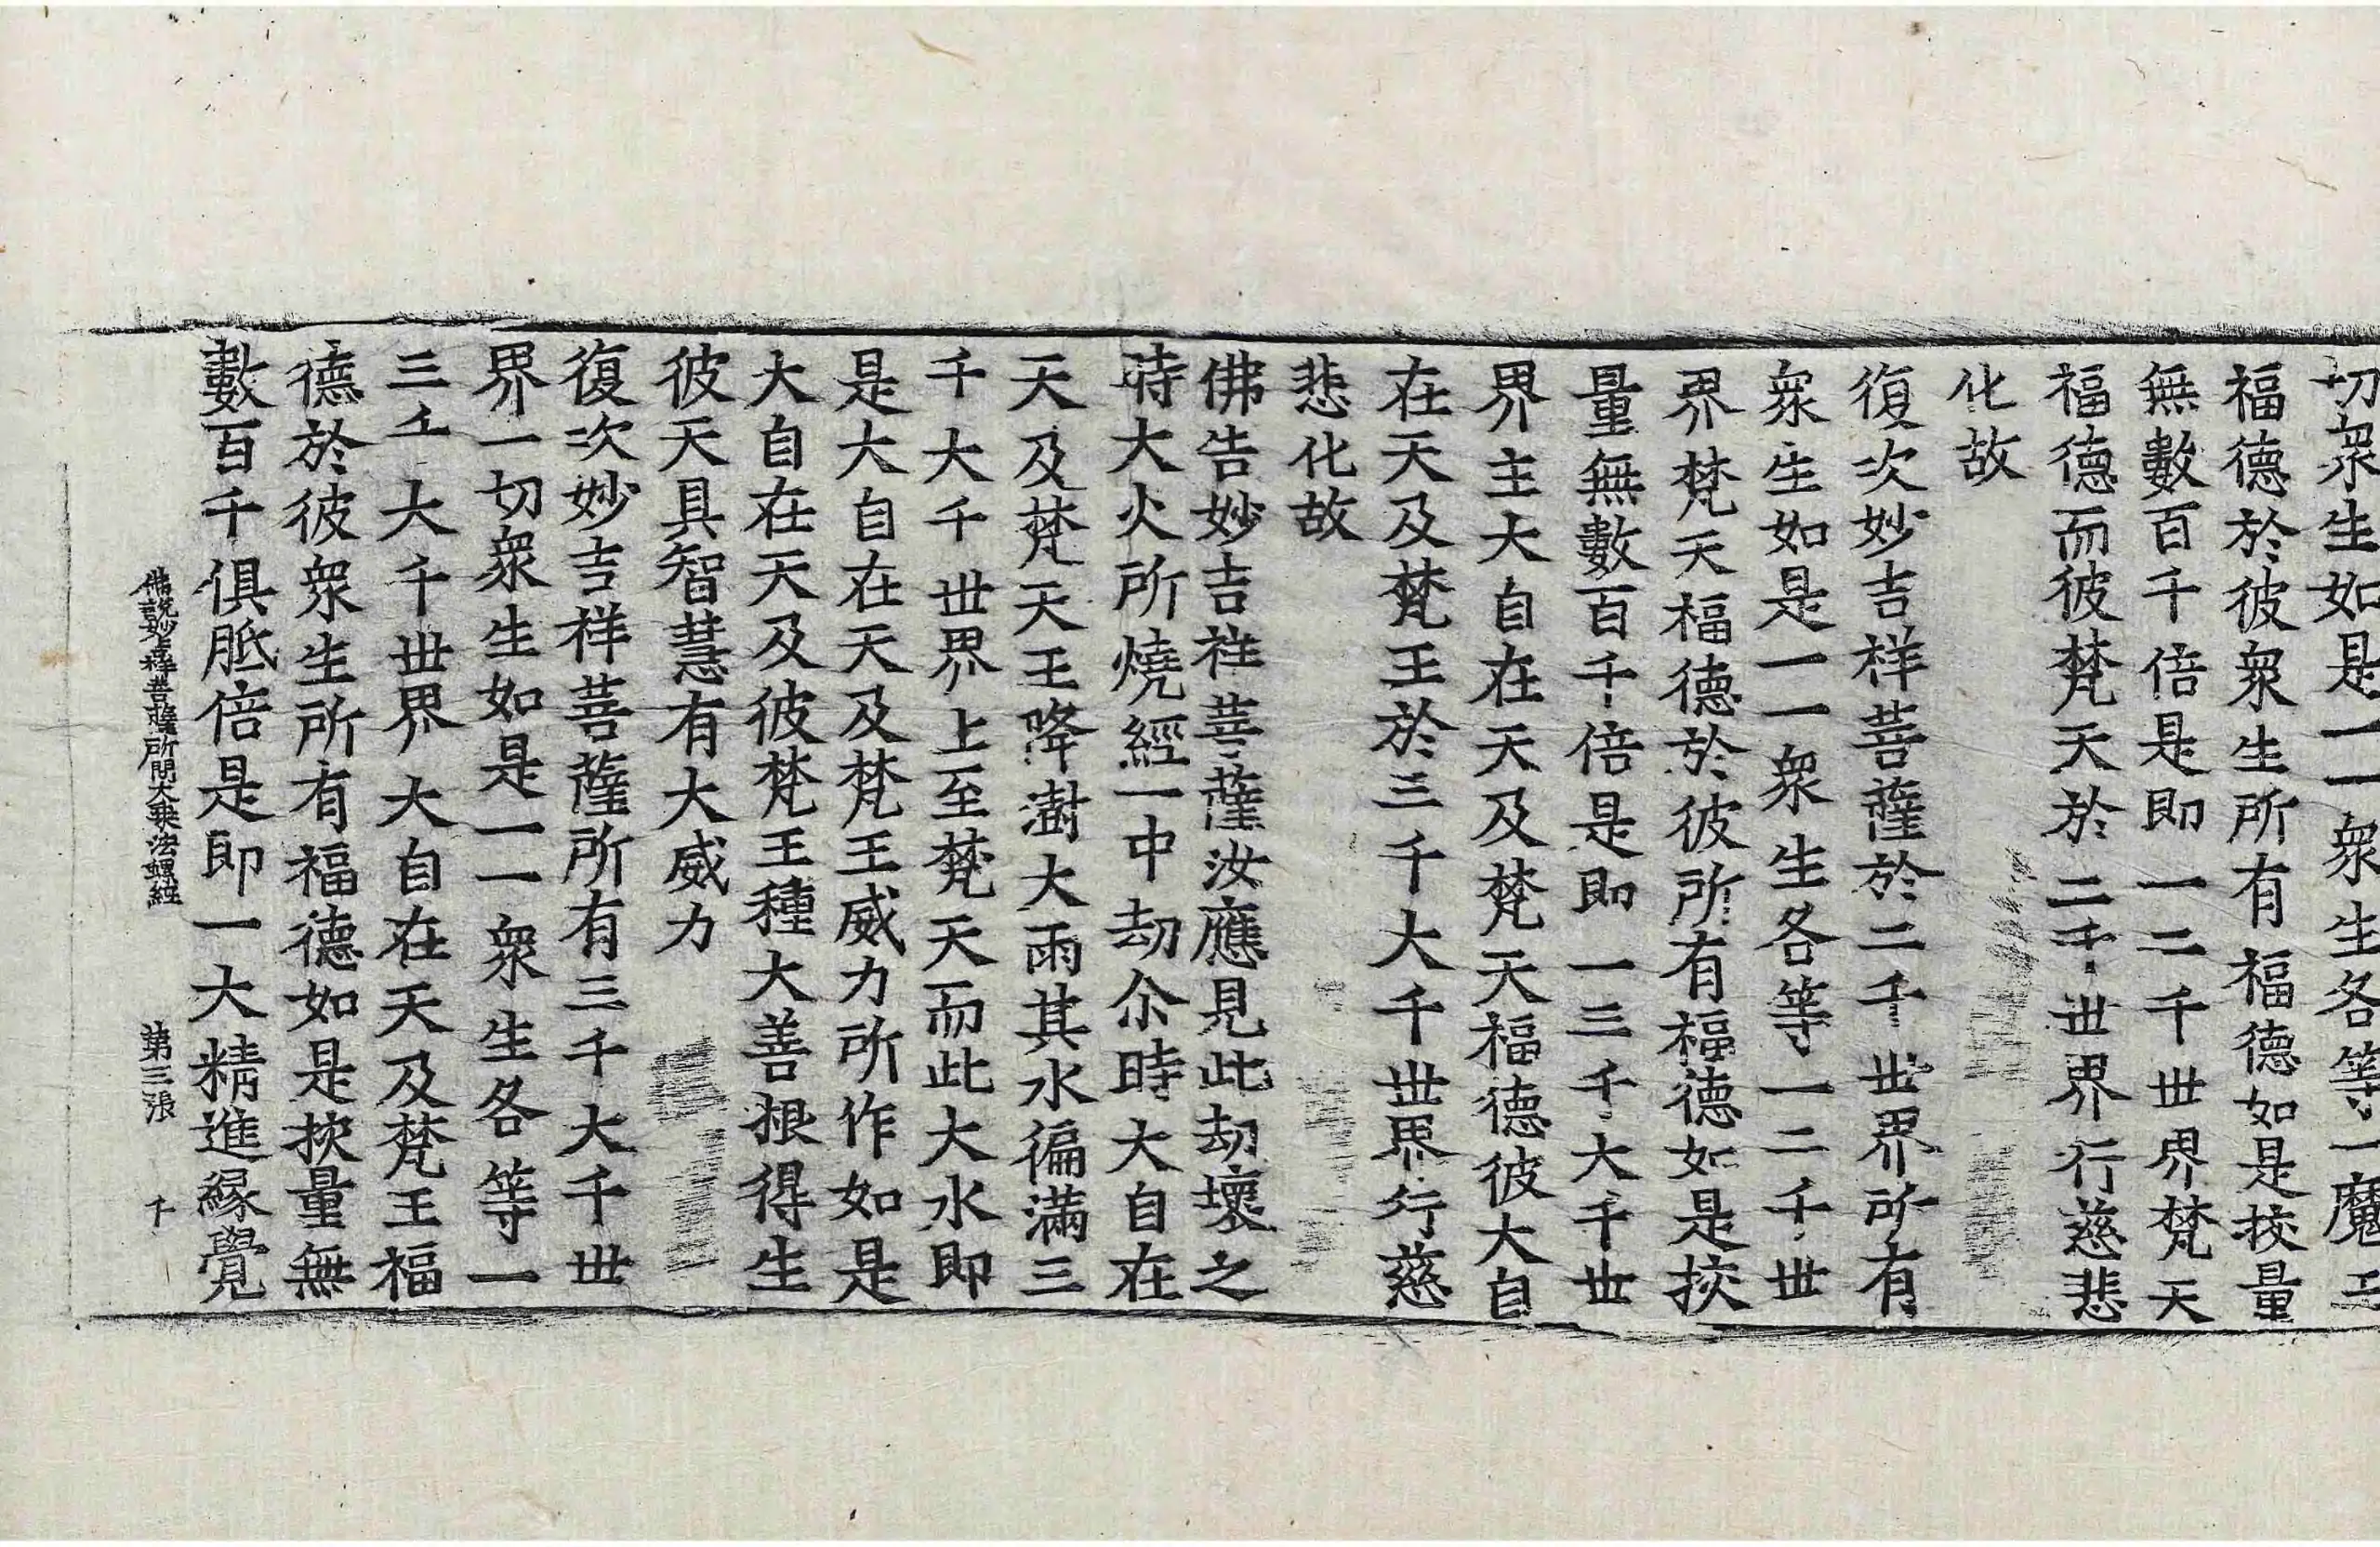 切衆生如是一一衆生各等一魔王
福德於彼衆生所有福德如是挍量
無數百千倍是即一二千世界梵天
福德而彼梵天於二千世界行慈悲
化故
復次妙吉祥菩薩於二千世界所有
衆生如是一一衆生各等一二千世
界梵天福德於彼所有福德如是挍
量無數百千倍是即一三千大千世
界主大自在天及梵天福德彼大自
在天及梵王於三千大千世界行慈
悲化故
佛告妙吉祥菩薩汝應見此劫壞之
時大火所燒經一中劫尒時大自在
天及梵天王降澍大雨其水徧滿三
千大千世界上至梵天而此大水即
是大自在天及梵王威力所作如是
大自在天及彼梵王種大善根得生
彼天具智慧有大威力
復次妙吉祥菩薩所有三千大千世
界一切衆生如是一一衆生各等一
三千大千世界大自在天及梵王福
德於彼衆生所有福德如是挍量無
數百千俱胝倍是即一大精進緣覺
佛說妙吉祥菩薩所問大乘法螺經 第三張 千